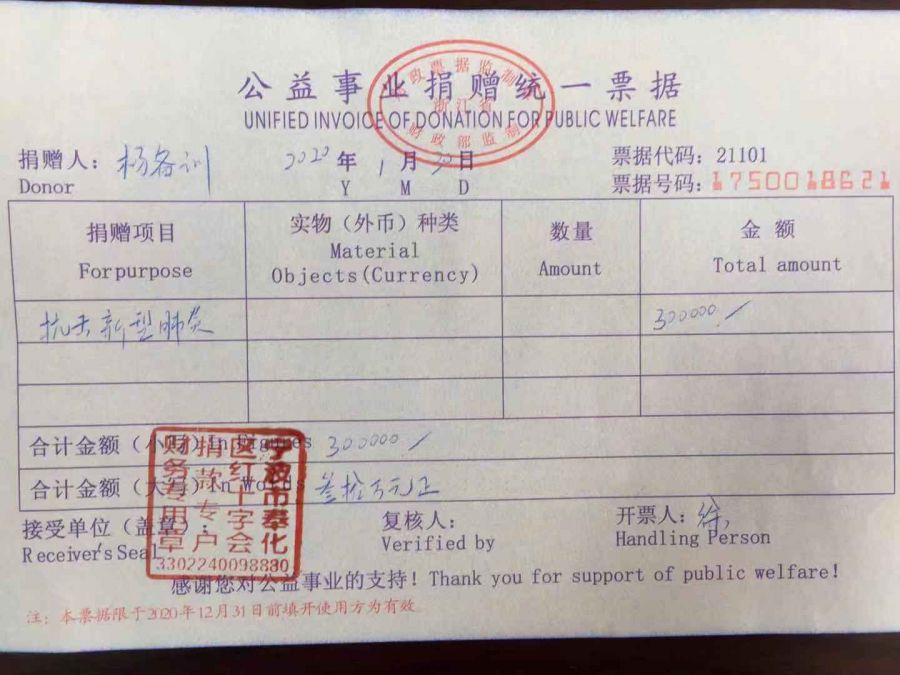 公益事业捐赠统一票据
UNIFIED INVOICE OF DONATION FOR PUBLIC WELFARE
浙江省
财政部监制
捐赠人：杨各训 2020 年 1 月 30 日 票据代码：21101
Donor Y M D 票据号码：1750018621
捐赠项目 实物（外币）种类 数量 金 额
For purpose Material Objects(Currency) Amount Total amount
抗击新型肺炎 300000.
合计金额（小写）In Figures 300000.
合计金额（大写）In Words 叁拾万元正
接受单位（盖章）： 复核人： 开票人：徐
Receiver's Seal Verified by Handling Person
宁波市奉化
区红十字会
捐款专户
财务专用章
3302240098880
感谢您对公益事业的支持！Thank you for support of public welfare!
注：本票据限于2020年12月31日前填开使用方为有效